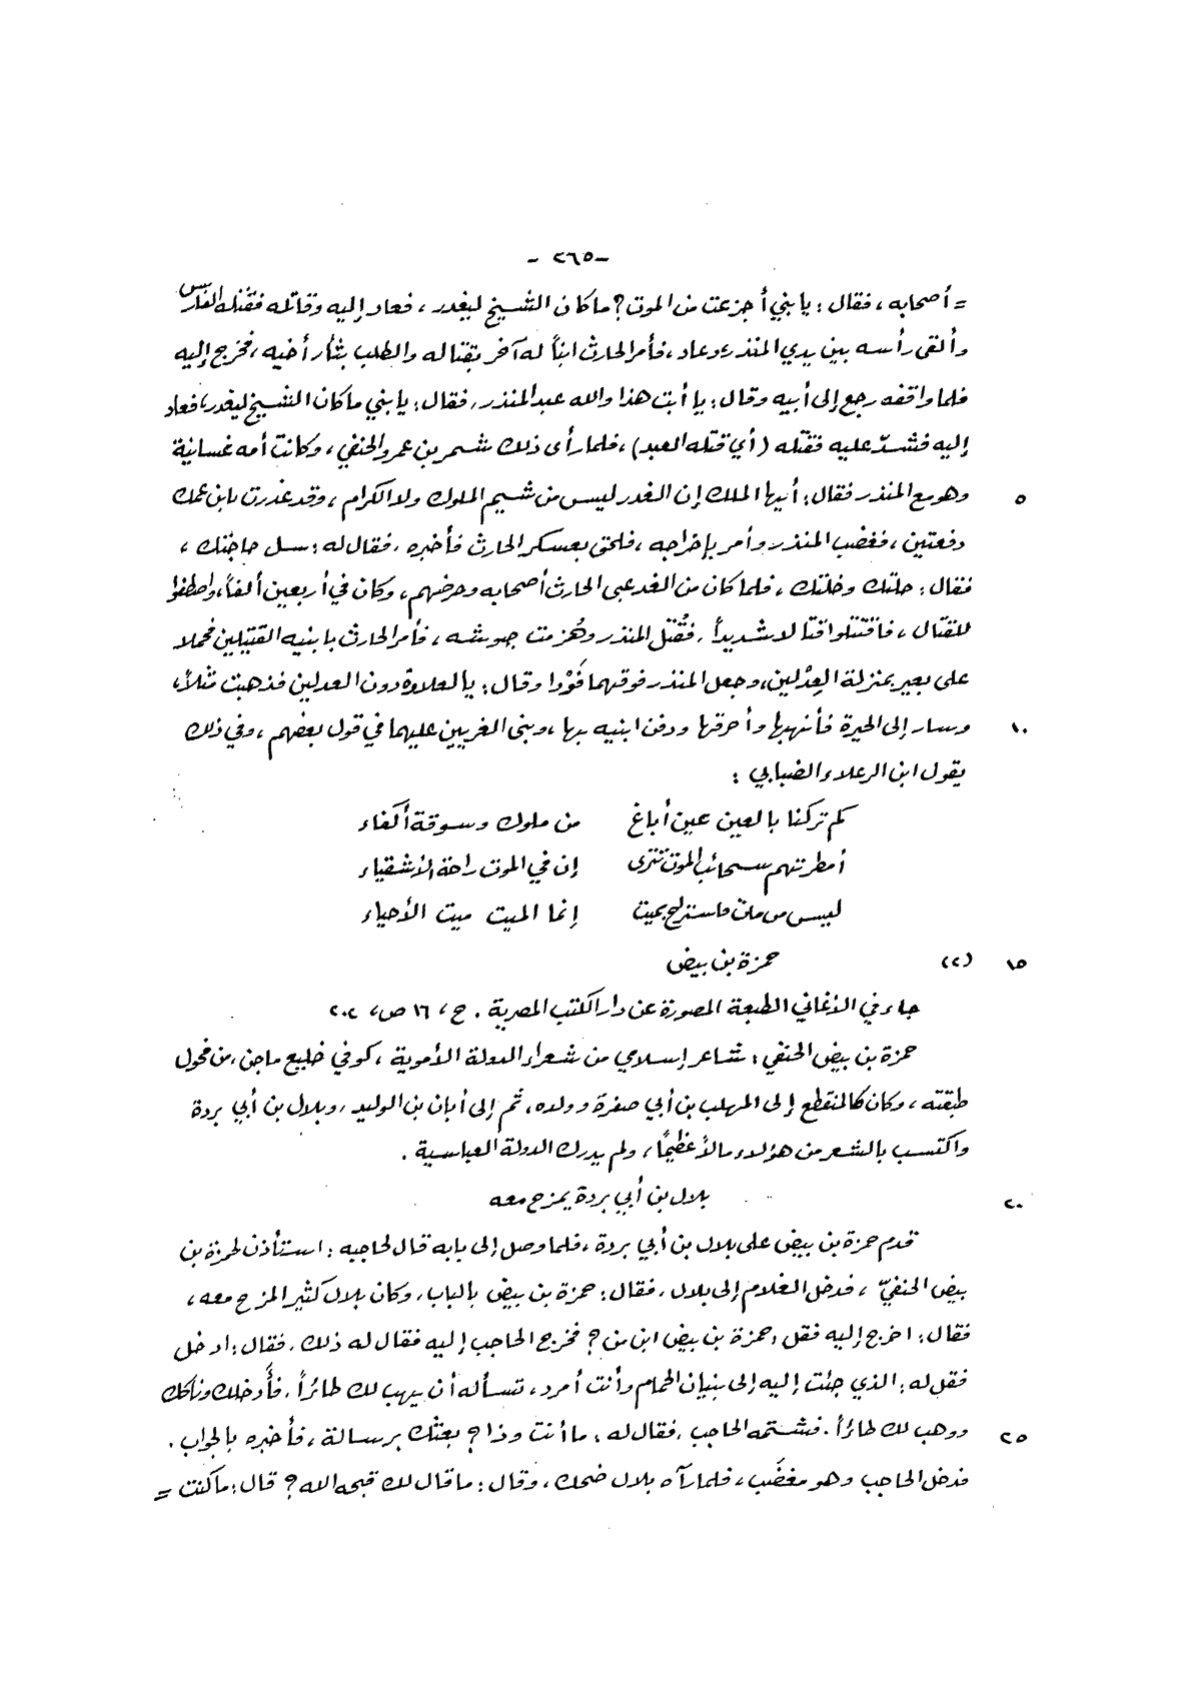 -٢٦٥-
= أصحابه ، فقال : يا بني أجزعت من الموت ؟ ما كان الشيخ ليغدر ، فعاد إليه وقاتله فقتله الفارس
وألقى رأسه بين يدي المنذر ، وعاد ، فأمر الحارث ابناً له آخر بقتاله والطلب بثأر أخيه ، فخرج إليه
فلما واقفه رجع إلى أبيه وقال : يا أبت هذا والله عبد المنذر ، فقال : يا بني ما كان الشيخ ليغدر ، فعاد
إليه فشدّ عليه فقتله (أي قتله العبد) ، فلما رأى ذلك شمر بن عمرو الحنفي ، وكانت أمه غسانية
٥ وهو مع المنذر فقال : أيها الملك إن الغدر ليس من شيم الملوك ولا الكرام ، وقد غدرت بابن عمك
دفعتين ، فغضب المنذر وأمر بإخراجه ، فلحق بعسكر الحارث فأخبره ، فقال له : سل حاجتك ،
فقال : حلتك وخلتك ، فلما كان من الغد عبى الحارث أصحابه وحرضهم ، وكان في أربعين ألفاً ، واصطفوا
للقتال ، فاقتتلوا قتالا شديداً ، فقُتل المنذر وهُزمت جيوشه ، فأمر الحارث بابنيه القتيلين فحملا
على بعير بمنزلة العِدْلين ، وجعل المنذر فوقهما فَوْدا وقال : يا لعلاوة دون العدلين فذهبت مثلاً ،
١٠ وسار إلى الحيرة فأنهبها وأحرقها ودفن ابنيه بها ، وبنى الغريين عليهما في قول بعضهم ، وفي ذلك
يقول ابن الرعلاء الضبابي :
كم تركنا بالعين عين أباغ من ملوك وسوقة أكفاء
أمطرتهم سحائب الموت تترى إن في الموت راحة الأشقياء
ليس من مات فاستراح بميت إنما الميت ميت الأحياء
١٥ (٢) حمزة بن بيض
جاء في الأغاني الطبعة المصورة عن دار الكتب المصرية . ج ، ١٦ ص ، ٢٠٢
حمزة بن بيض الحنفي : شاعر إسلامي من شعراء الدولة الأموية ، كوفي خليع ماجن ، من فحول
طبقته ، وكان كالمنقطع إلى المهلب بن أبي صفرة وولده ، ثم إلى أبان بن الوليد ، وبلال بن أبي بردة
واكتسب بالشعر من هؤلاء مالاً عظيماً ، ولم يدرك الدولة العباسية .
٢٠ بلال بن أبي بردة يمزح معه
قدم حمزة بن بيض على بلال بن أبي بردة ، فلما وصل إلى بابه قال لحاجبه : استأذن لحمزة بن
بيض الحنفيّ ، فدخل الغلام إلى بلال ، فقال : حمزة بن بيض بالباب ، وكان بلال كثير المزح معه ،
فقال : اخرج إليه فقل : حمزة بن بيض ابن من ؟ فخرج الحاجب إليه فقال له ذلك ، فقال : ادخل
فقل له : الذي جئت إليه إلى بنيان الحمام وأنت أمرد ، تسأله أن يهب لك طائراً ، فأدخلك وناكك
٢٥ ووهب لك طائراً . فشتمه الحاجب ، فقال له : ما أنت وذا ؟ بعثك برسالة ، فأخبره بالجواب .
فدخل الحاجب وهو مغضَب ، فلما رآه بلال ضحك ، وقال : ما قال لك قبحه الله ؟ قال : ما كنت =